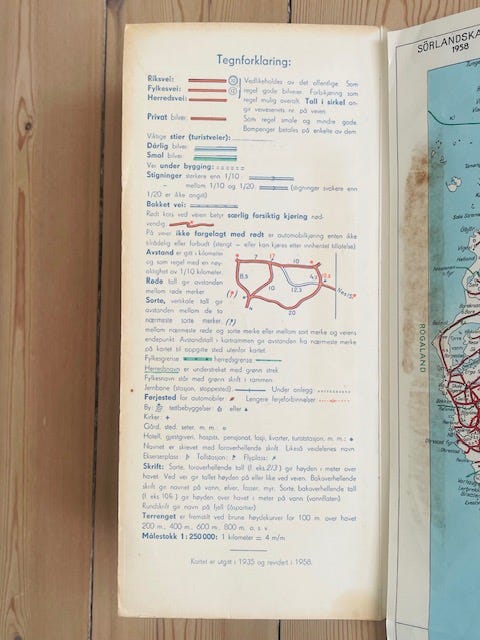 Tegnforklaring:
Riksvei:
Fylkesvei:
Herredsvei:
Vedlikeholdes av det offentlige. Som
regel gode bilveier. Forbikjøring som
regel mulig overalt. Tall i sirkel an-
gir veivesenets nr. på veien.
Privat bilvei:
Som regel smale og mindre gode.
Bompenger betales på enkelte av dem.
Viktige stier (turistveier):
Dårlig bilvei:
Smal bilvei:
Vei under bygging:
Stigninger sterkere enn 1/10:
– mellom 1/10 og 1/20: (stigninger svakere enn
1/20 er ikke angitt)
Bakket vei:
Rødt kors ved veien betyr særlig forsiktig kjøring nød-
vendig
På veier ikke forgelagt med rødt er automobilkjøring enten ikke
tilrådelig eller forbudt (stengt – eller kan kjøres etter innhentet tillatelse)
Avstand er gitt i kilometer
og som regel med en nøy-
aktighet av 1/10 kilometer.
Røde tall gir avstanden
mellom røde merker.
Sorte, vertikale tall gir
avstanden mellem de to
nærmeste sorte merker,
mellom nærmeste røde og sorte merke eller mellom sort merke og veiens
endepunkt. Avstandstall i kartrammen gir avstanden fra nærmeste merke
på kartet til oppgitte sted utenfor kartet.
7 17 10
8,5 10 12,3 20
Fylkesgrense: herredsgrense:
Herredsnavn er understreket med grønn strek.
Fylkesnavn står med grønn skrift i rammen.
Jernbane (stasjon, stoppested): Under anlegg:
Ferjested for automobiler: Lengere ferjeforbindelser
By: tettbebyggelser: eller
Kirker:
Gård, sted, seter, m. m.
Hotell, gjestgiveri, hospits, pensjonat, losji, kvarter, turiststasjon, m. m.:
Navnet er skrevet med foroverhellende skrift. Likeså veidelenes navn
Ekserserplass: Tollstasjon: Flyplass:
Skrift: Sorte, foroverhellende tall (f. eks. 213) gir høyden i meter over
havet. Ved veir gir tallet høyden på eller like ved veien. Bakoverhellende
skrift gir navnet på vann, elver, fosser, myr. Sorte, bakoverhellende tall
(f. eks. 106) gir høyden over havet i meter på vann (vannflaten).
Rundskrift gir navn på fjell (åspartier)
Terrenget er fremstilt ved brune høydekurver for 100 m. over havet
200 m., 400 m., 600 m., 800 m. o. s. v.
Målestokk 1:250000: 1 kilometer = 4 m/m
Kartet er utgitt i 1935 og revidert i 1958.
SÖRLANDSKA
1958
ROGALAND